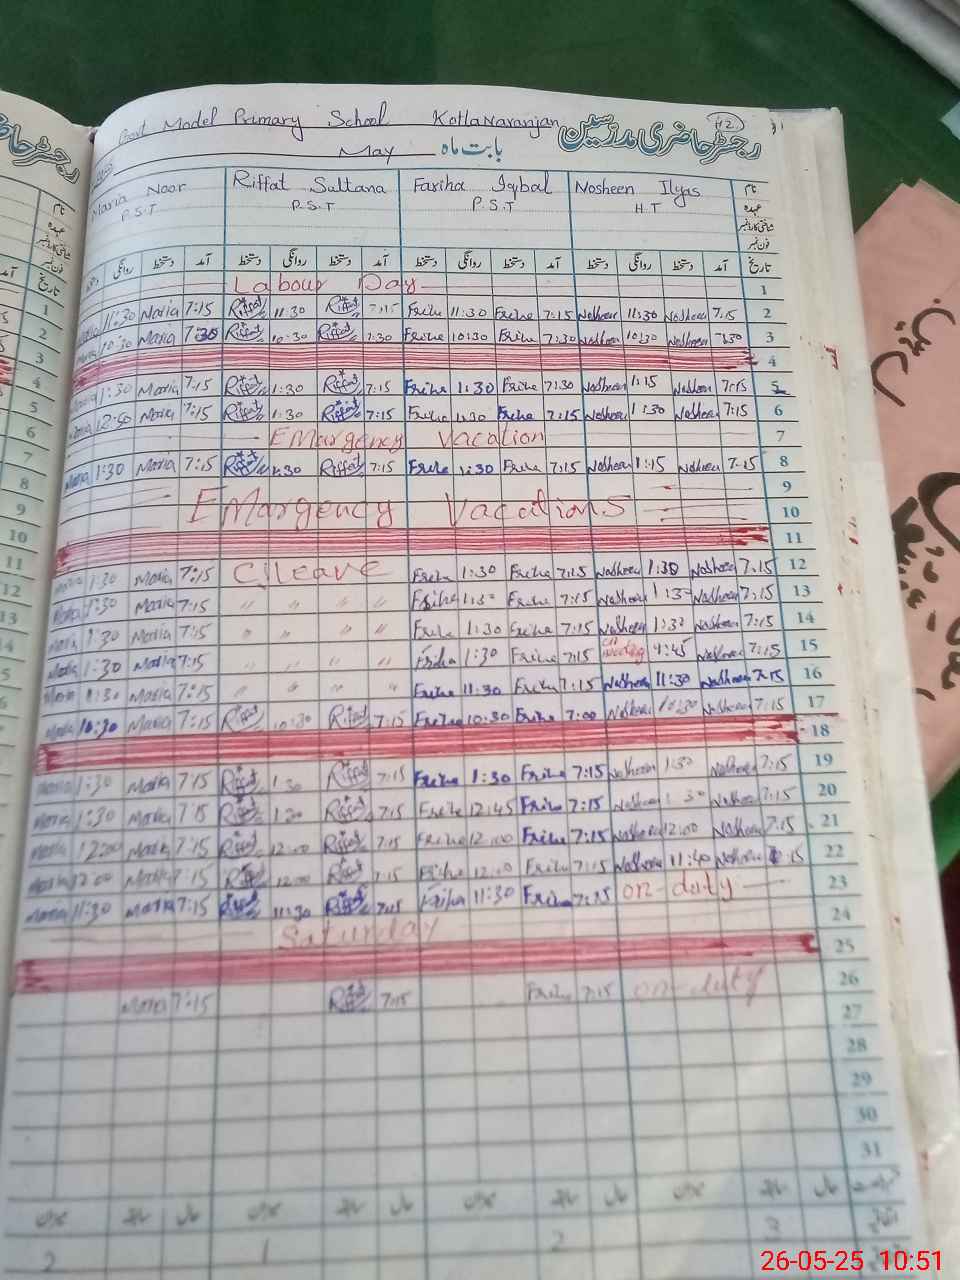 Govt Model Primary School Kotla Naranjan
رجسٹر حاضری مدرسین 42
May بابت ماہ
Maria Noor Riffat Sultana Fariha Iqbal Nosheen Ilyas نام
P.S.T P.S.T P.S.T H.T عہدہ
شناختی کارڈ نمبر
فون نمبر
روانگی دستخط آمد دستخط روانگی دستخط آمد دستخط روانگی دستخط آمد دستخط روانگی دستخط آمد تاریخ
Labour Day 1
11:30 Maria 7:15 Riffat 11:30 Riffat 7:15 Friha 11:30 Friha 7:15 Nosheen 11:30 Nosheen 7:15 2
10:30 Maria 7:30 Riffat 10:30 Riffat 7:30 Friha 10:30 Friha 7:30 Nosheen 10:30 Nosheen 7:30 3
4
1:30 Maria 7:15 Riffat 1:30 Riffat 7:15 Friha 1:30 Friha 7:30 Nosheen 1:15 Nosheen 7:15 5
12:50 Maria 7:15 Riffat 1:30 Riffat 7:15 Friha 1:30 Friha 7:15 Nosheen 1:30 Nosheen 7:15 6
EMargency Vacation 7
Maria 1:30 Maria 7:15 Riffat 1:30 Riffat 7:15 Friha 1:30 Friha 7:15 Nosheen 1:15 Nosheen 7:15 8
9
EMargency Vacations 10
11
1:30 Maria 7:15 C/leave Friha 1:30 Friha 7:15 Nosheen 1:30 Nosheen 7:15 12
1:30 Maria 7:15 " " " " Friha 1:30 Friha 7:15 Nosheen 1:30 Nosheen 7:15 13
1:30 Maria 7:15 " " " " Friha 1:30 Friha 7:15 Nosheen 1:30 Nosheen 7:15 14
Maria 1:30 Maria 7:15 " " " " Friha 1:30 Friha 7:15 on meeting 9:45 Nosheen 7:15 15
Maria 11:30 Maria 7:15 " " " " Friha 11:30 Friha 7:15 Nosheen 11:30 Nosheen 7:15 16
Maria 10:30 Maria 7:15 Riffat 10:30 Riffat 7:15 Friha 10:30 Friha 7:00 Nosheen 10:30 Nosheen 7:15 17
18
Maria 1:30 Maria 7:15 Riffat 1:30 Riffat 7:15 Friha 1:30 Friha 7:15 Nosheen 1:30 Nosheen 7:15 19
Maria 1:30 Maria 7:15 Riffat 1:30 Riffat 7:15 Friha 12:45 Friha 7:15 Nosheen 1:30 Nosheen 7:15 20
Maria 12:00 Maria 7:15 Riffat 12:00 Riffat 7:15 Friha 12:00 Friha 7:15 Nosheen 12:00 Nosheen 7:15 21
Maria 12:00 Maria 7:15 Riffat 12:00 Riffat 7:15 Friha 12:00 Friha 7:15 Nosheen 11:40 Nosheen 7:15 22
Maria 11:30 Maria 7:15 Riffat 11:30 Riffat 7:15 Friha 11:30 Friha 7:15 on-duty 23
Saturday 24
25
Maria 7:15 Riffat 7:15 Friha 7:15 on-duty 26
27
28
29
30
31
میزان سابقہ حال میزان سابقہ حال میزان سابقہ حال میزان سابقہ حال
2 1 2 3
26-05-25 10:51